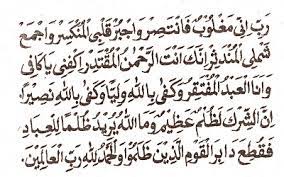 رَبِّ اِنِّي مَغْلُوبٌ فَانْتَصِرْ وَاجْبُرْ قَلْبِيَ الْمُنْكَسِرَ وَاجْمَعْ
شَمْلِيَ الْمُنْدَثِرَ اِنَّكَ اَنْتَ الرَّحْمٰنُ الْمُقْتَدِرُ اِكْفِنِي يَا كَافِي
وَاَنَا الْعَبْدُ الْمُفْتَقِرُ وَكَفٰى بِاللّٰهِ وَلِيًّا وَكَفٰى بِاللّٰهِ نَصِيرًا
اِنَّ الشِّرْكَ لَظُلْمٌ عَظِيمٌ وَمَا اللّٰهُ يُرِيدُ ظُلْمًا لِلْعِبَادِ
فَقُطِعَ دَابِرُ الْقَوْمِ الَّذِينَ ظَلَمُوا وَالْحَمْدُ لِلّٰهِ رَبِّ الْعَالَمِينَ